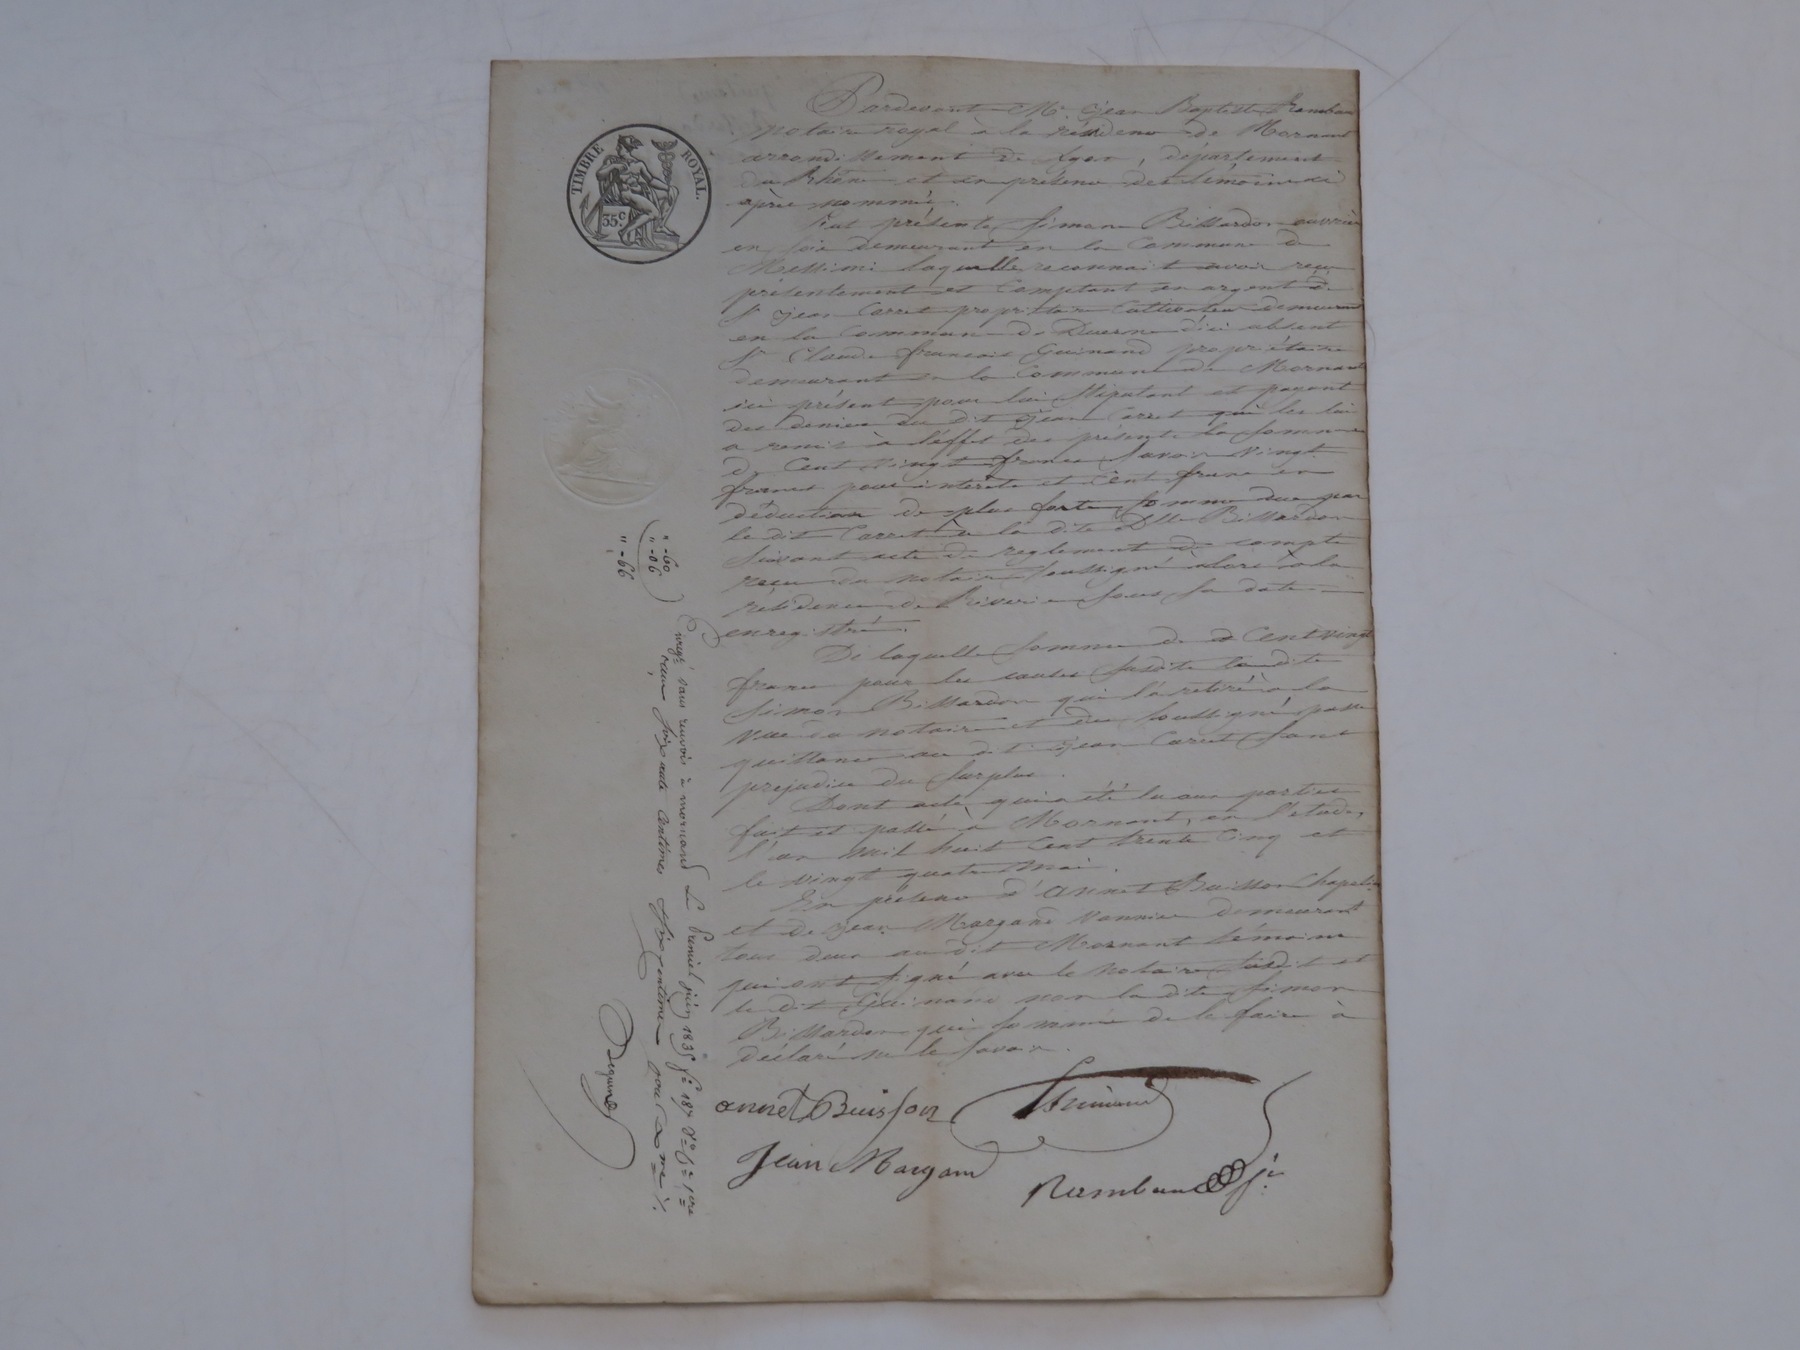 TIMBRE ROYAL.
35c
Pardevant Me Jean Baptiste Rambau
notaire royal à la résidence de Mornant
arrondissement de Lyon, département
du Rhône et en présence des témoins ci
après nommés.
Fut présente Simone Bissardon ouvrière
en soie demeurant en la Commune de
Messimi laquelle reconnait avoir reçu
présentement et Comptant en argent de
Sr Jean Carret propriétaire Cultivateur demeurant
en la Commune de Duerne d'ici absent
Sr Claude francois Guinand propriétaire
demeurant en la Commune de Mornant
ici présent pour lui stipulant et payant
des deniers du dit Jean Carret qui les lui
a remis à l'effet des présentes la somme
de Cent vingt francs savoir vingt
francs pour intérêts et Cent francs en
déduction de plus forte somme due par
le dit Carret à la dite Dlle Bissardon
suivant acte de reglement de compte
reçu du notaire soussigné alors à la
résidence de Riverie sous sa date
enregistré.
De laquelle somme de Cent vingt
francs pour les causes susdite la dite
Simone Bissardon qui l'a retiré à la
vue du notaire et des soussignés passe
quittance au dit Jean Carret sans
prejudice du surplus.
Dont acte qui a été lu aux parties
fait et passé à Mornant, en l'étude,
l'an mil huit Cent trente Cinq et
le vingt quatre mai.
En présence d'annet Buisson Chapelier
et de Jean Margand vannier demeurant
tous deux au dit Mornant témoins
qui ont signé avec le notaire susdit et
le dit Guinand non la dite Simone
Bissardon qui sommée de le faire à
déclaré ne le savoir.
annet Buisson
Guinand
Jean Margand
Rambau
"-60
"-06
"-66
Enregé sans renvois à mornand Le Premier juin 1835 fo 187 Vo
reçu soixante centimes six centimes pour